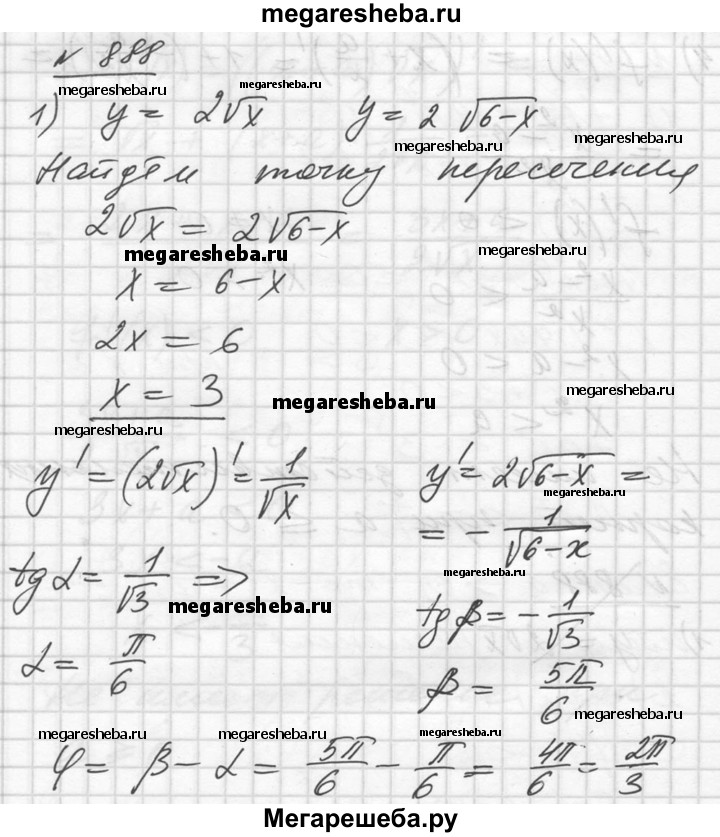 megaresheba.ru
№ 888
megaresheba.ru megaresheba.ru
1) y = 2√x y = 2 √6-x
megaresheba.ru megaresheba.ru
Найдём точку пересечения
2√x = 2√6-x
megaresheba.ru megaresheba.ru
x = 6-x
2x = 6
x = 3
megaresheba.ru megaresheba.ru
megaresheba.ru megaresheba.ru
y' = (2√x)' = 1/√x y' = 2√6-x =
megaresheba.ru
= - 1/√6-x
tg α = 1/√3 => megaresheba.ru
megaresheba.ru
tg β = - 1/√3
α = π/6 β = 5π/6
megaresheba.ru
megaresheba.ru megaresheba.ru megaresheba.ru
φ = β - α = 5π/6 - π/6 = 4π/6 = 2π/3
megaresheba.ru megaresheba.ru
Мегарешеба.ру